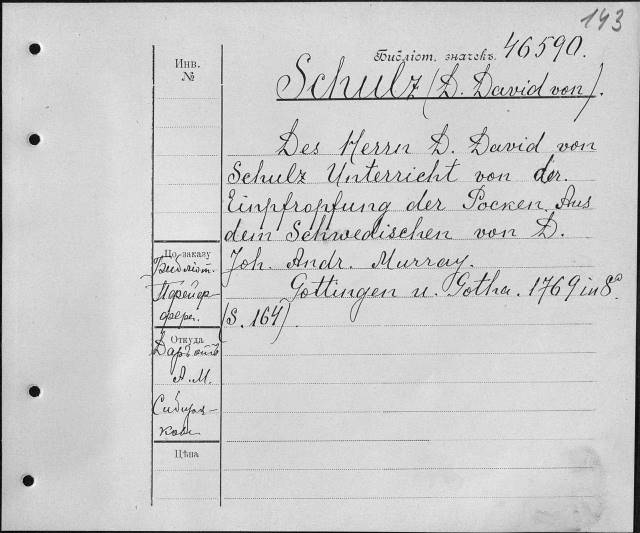 143
Библіот. значекъ 46590.
Инв.
№
Schulz (D. David von).
Des Herrn D. David von
Schulz Unterricht von der
Einpfropfung der Pocken Aus
dem Schwedischen von D.
Joh. Andr. Murray.
Gottingen u. Gotha. 1769 in 8°
(S. 164).
По заказу
Библіот.
Откуда
Даръ отъ
А. М.
Сибиря-
кова
Цѣна